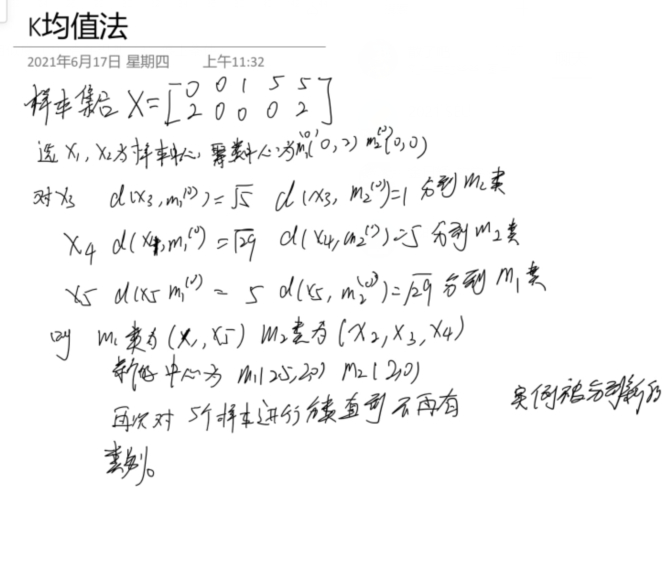 K均值法
2021年6月17日 星期四 上午11:32
样本集合 X=[0 0 1 5 5
2 0 0 0 2]
选 X1, X2为样本中心, 聚类中心为m1(0)(0,2) m2(0)(0,0)
对X3 d(X3,m1(0))=√5 d(X3, m2(0))=1 分到m2类
X4 d(X4,m1(0))=√29 d(X4,m2(0))=5 分到m2类
X5 d(X5 m1(0))= 5 d(X5, m2(0))=√29 分到m1类
则 m1类为(X1,X5) m2类为(X2,X3,X4)
新的中心为 m1(2.5,2.0) m2(2,0)
再次对 5个样本进行分类直到不再有 实例被分到新的
类别。